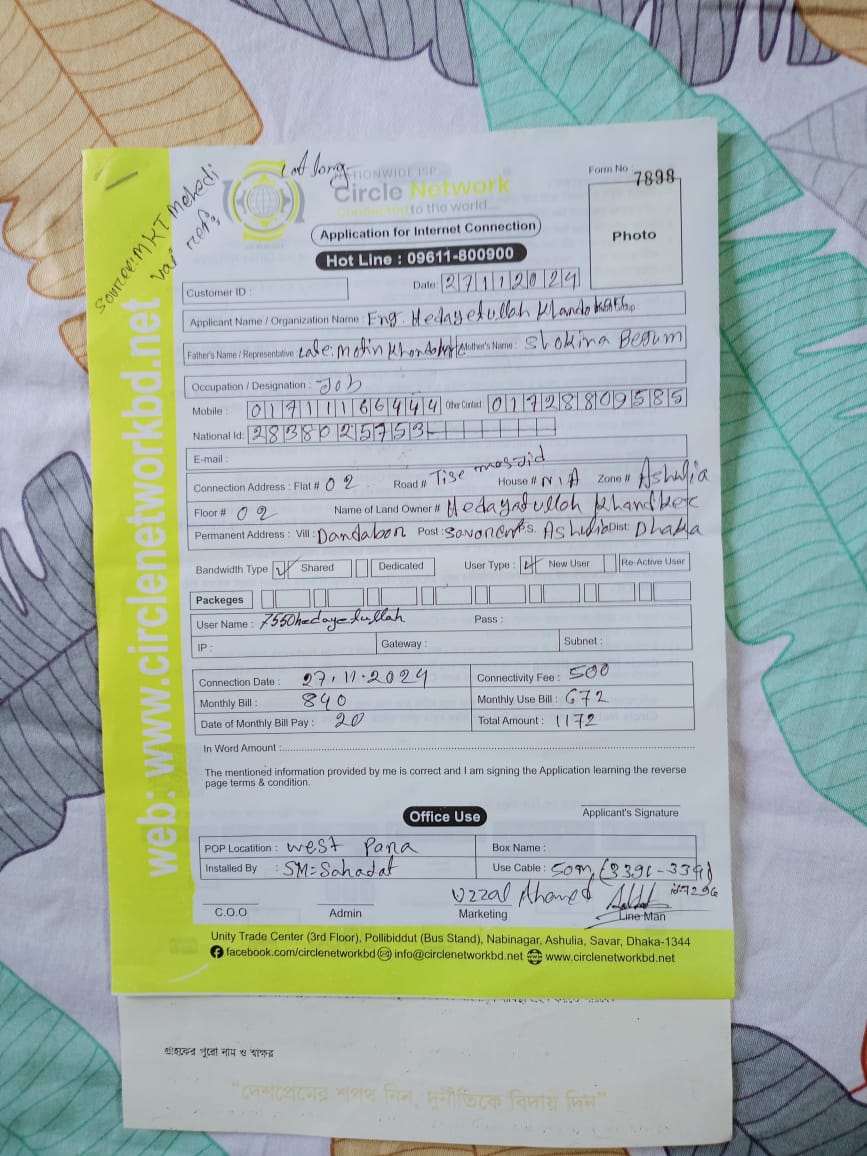 Lat long
NATIONWIDE ISP
Circle Network
Connected to the world
Source: MKT Mehedi
Vai ref:
Form No : 7898
Photo
Application for Internet Connection
Hot Line : 09611-800900
Customer ID :
Date: 27112024
Applicant Name / Organization Name : Eng. Hedayetullah Khandokar
Father's Name / Representative Late: Motin Khondokar Mother's Name : Shokina Begum
Occupation / Designation : Job
Mobile : 01711166444 Other Contact : 01728809585
National Id: 2838025753
E-mail :
Connection Address : Flat # 02 Road # Tise mosjid House # N/A Zone # Ashulia
Floor # 02 Name of Land Owner # Hedayatulloh Khandker
Permanent Address : Vill : Dandabon Post : Savar P.S. Ashulia Dist: Dhaka
Bandwidth Type Shared Dedicated User Type : New User Re-Active User
Packeges
User Name : 7550hedayetullah Pass :
IP : Gateway : Subnet :
Connection Date : 27.11.2024 Connectivity Fee : 500
Monthly Bill : 840 Monthly Use Bill : 672
Date of Monthly Bill Pay : 20 Total Amount : 1172
In Word Amount :
The mentioned information provided by me is correct and I am signing the Application learning the reverse
page terms & condition.
Applicant's Signature
Office Use
POP Locatition : west Para Box Name :
Installed By : SM=Sahadat Use Cable : 50m (3391-3341)
Uzzal Ahamed
C.O.O Admin Marketing Line Man
Unity Trade Center (3rd Floor), Pollibiddut (Bus Stand), Nabinagar, Ashulia, Savar, Dhaka-1344
facebook.com/circlenetworkbd info@circlenetworkbd.net www.circlenetworkbd.net
web: www.circlenetworkbd.net
গ্রাহকের পুরো নাম ও স্বাক্ষর
“দেশপ্রেমের শপথ নিন, দুর্নীতিকে বিদায় দিন”